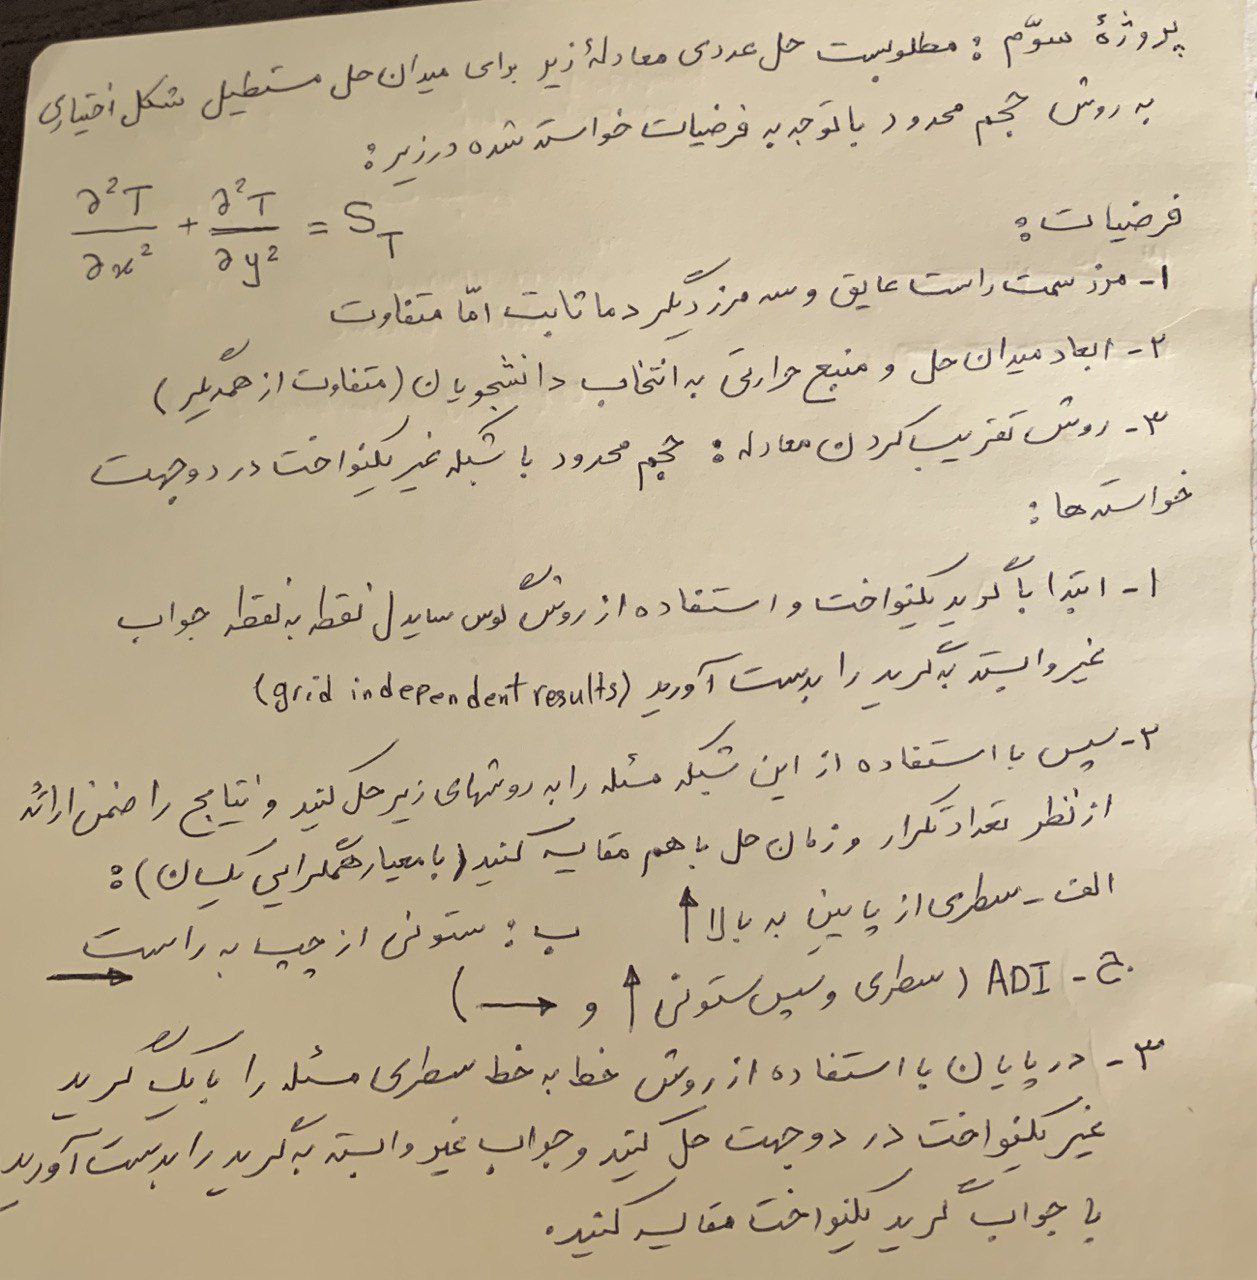 پروژهٔ سوّم : مطلوبست حل عددی معادلهٔ زیر برای میدان حل مستطیل شکل اختیاری
به روش حجم محدود با توجه به فرضیات خواسته شده در زیر :
∂²T/∂x² + ∂²T/∂y² = S_T
فرضیات :
۱- مرز سمت راست عایق و سه مرز دیگر دما ثابت امّا متفاوت
۲- ابعاد میدان حل و منبع حرارتی به انتخاب دانشجویان (متفاوت از همدیگر)
۳- روش تقریب کردن معادله : حجم محدود با شبکه غیر یکنواخت در دو جهت
خواسته ها :
۱- ابتدا با گرید یکنواخت و استفاده از روش گوس سایدل نقطه به نقطه جواب
غیر وابسته به گرید را بدست آورید (grid independent results)
۲- سپس با استفاده از این شبکه مسئله را به روشهای زیر حل کنید و نتایج را ضمن ارائه
از نظر تعداد تکرار و زمان حل با هم مقایسه کنید (با معیار همگرایی یکسان) :
الف - سطری از پایین به بالا ↑ ب : ستونی از چپ به راست →
ج - ADI (سطری و سپس ستونی ↑ و →)
۳- در پایان با استفاده از روش خط به خط سطری مسئله را با یک گرید
غیر یکنواخت در دو جهت حل کنید و جواب غیر وابسته به گرید را بدست آورید
با جواب گرید یکنواخت مقایسه کنید.